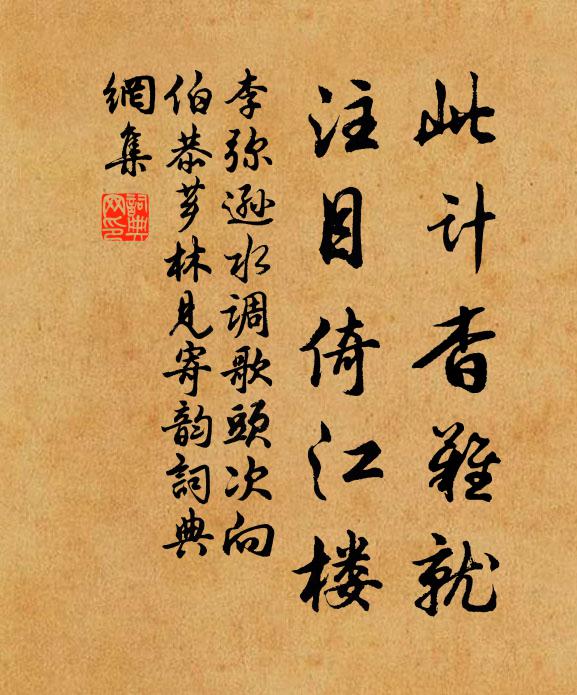 此计杳难就
注目倚江楼
李弥逊水调歌頭次向
伯恭芗林見寄韵詞典
網集
詞典
网印